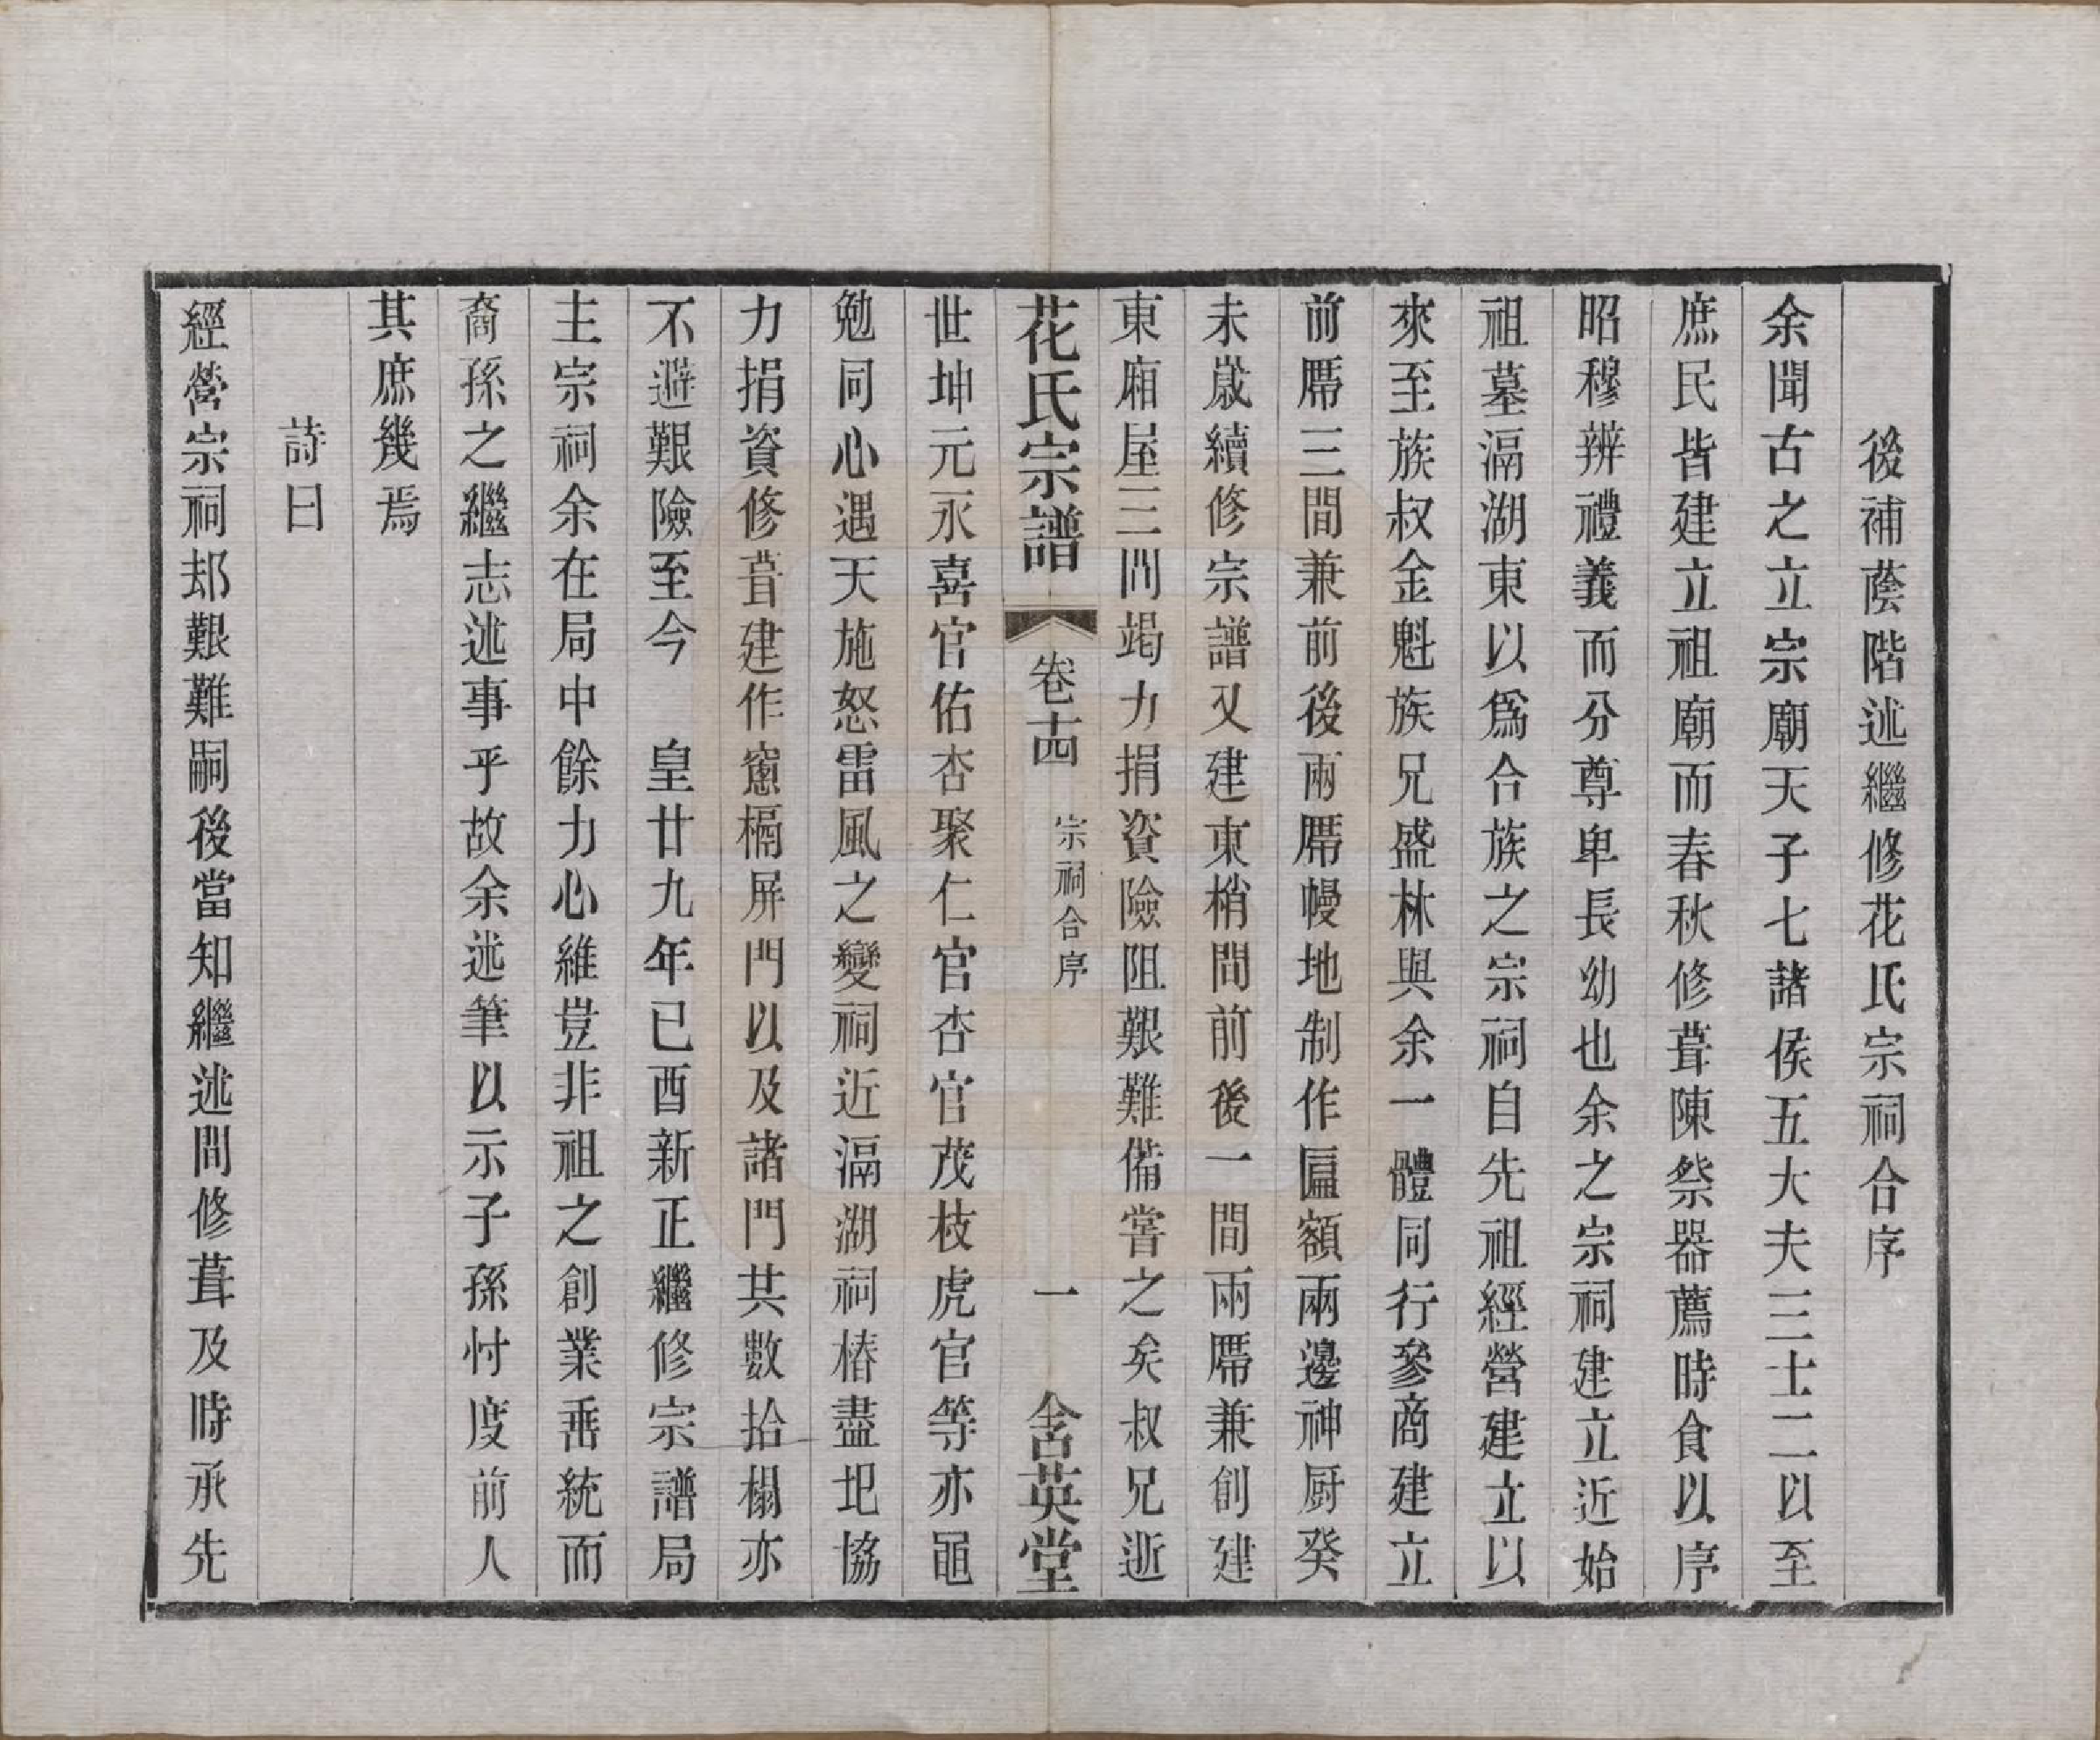 後補蔭階述繼修花氏宗祠合序
余聞古之立宗廟天子七諸侯五大夫三士二以至
庶民皆建立祖廟而春秋修葺陳祭器薦時食以序
昭穆辨禮義而分尊卑長幼也余之宗祠建立近始
祖墓滆湖東以爲合族之宗祠自先祖經營建立以
來至族叔金魁族兄盛林與余一體同行參商建立
前厝三間兼前後兩厝幔地制作匾額兩邊神厨癸
未歲續修宗譜又建東梢間前後一間兩厝兼創建
東廂屋三間竭力捐資險阻艱難備嘗之矣叔兄逝
花氏宗譜
卷十四
宗祠合序
一
含英堂
世坤元永喜官佑杏聚仁官杏官茂枝虎官等亦黽
勉同心遇天施怒雷風之變祠近滆湖祠樁盡圯協
力捐資修葺建作窻槅屏門以及諸門共數拾榻亦
不避艱險至今 皇廿九年已酉新正繼修宗譜局
主宗祠余在局中餘力心維豈非祖之創業垂統而
裔孫之繼志述事乎故余述筆以示子孫忖度前人
其庶幾焉
詩曰
經營宗祠却艱難嗣後當知繼述間修葺及時承先